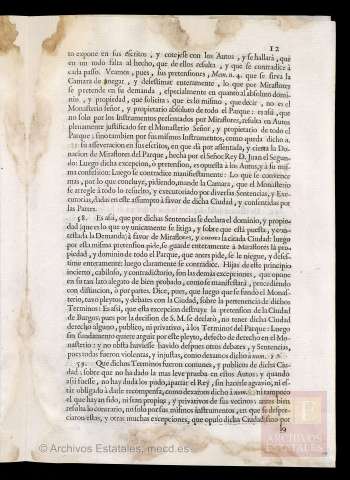 12
to expone en sus escritos, y cotejese con los Autos, y se hallarà, què
en un todo falta al hecho, que de ellos resulta, y que se contradice à
cada passo. Veamos, pues, sus pretensiones, Mem. n. 4. que se sirva la
Camara de negar, y desestimar enteramente, lo que por Miraflores
se pretende en su demanda, especialmente en quanto al absoluto domi-
nio, y propiedad, que solicita: que es lo mismo, que decir, no es el
Monasterio Señor, y propietario absoluto de todo el Parque: es assi, que
no solo por los Instrumentos presentados por Miraflores, resulta en Autos
plenamente justificado ser el Monasterio Señor, y propietario de todo el
Parque; sino tambien por sus mismos Instrumentos, como queda dicho n.
la asseveracion en sus escritos, en que dà por assentada, y cierta la Do-
nacion de Miraflores del Parque, hecha por el Señor Rey D. Juan el Segun-
do: Luego dicha excepcion, ò pretension, es opuesta à los Autos, y à su mis-
ma confession: Luego se contradice manifiestamente: Lo que se convence
mas, por lo que concluye, pidiendo, mande la Camara, que el Monasterio
se arregle à todo lo resuelto, y executoriado por diversas Sentencias, y Exe-
cutorias, dadas en este assumpto à favor de dicha Ciudad, y consentidas por
las Partes.
58. Es assi, que por dichas Sentencias se declara el dominio, y propie-
dad (que es lo que oy unicamente se litiga, y sobre que està puesta, y con-
testada la Demanda) à favor de Miraflores, y contra la citada Ciudad: luego
por essa misma pretension pide, se guarde enteramente à Miraflores la pro-
piedad, y dominio de todo el Parque, que antes pide, se le niegue, y deses-
time enteramente: luego claramente se contradice. Hijas de este principio
incierto, cabiloso, y contradictorio, son las demàs excepciones, que opone
en su tan lato alegato de bien probado, como se manifestarà, procediendo
con distincion, ò por partes. Dice, pues, que luego que se fundò el Monas-
terio, tuvo pleytos, y debates con la Ciudad, sobre la pertenencia de dichos
Terminos: Es assi, que esta excepcion destruye la pretension de la Ciudad
de Burgos; pues por la decision de S. M. se declarò, no tener dicha Ciudad
derecho alguno, publico, ni privativo, à los Terminos del Parque: Luego
sin fundamento quiere arguir por este pleyto, defecto de derecho en el Mo-
nasterio: y no obsta huviesse havido despues otros debates, y Sentencias,
pues todas fueron violentas, y injustas, como dexamos dicho à num.
59. Que dichos Terminos fueron comunes, y publicos de dicha Ciu-
dad: sobre que no ha dado la mas leve prueba en estos Autos: y quando
assi fuesse, no hay duda los pudo apartar el Rey, sin hacerle agravio, ni es-
tar obligado à darle recompensa, como dexamos dicho à num. ni tampoco
el que hayan sido, ni sean proprios, y privativos de sus vecinos: antes bien
resulta lo contrario, no solo por sus mismos instrumentos, en que se despre-
ciaron estas, y otras muchas excepciones, que opuso dicha Ciudad, sino por
lo
© Archivos Estatales, mecd.es
ARCHIVOS
ESTATALES